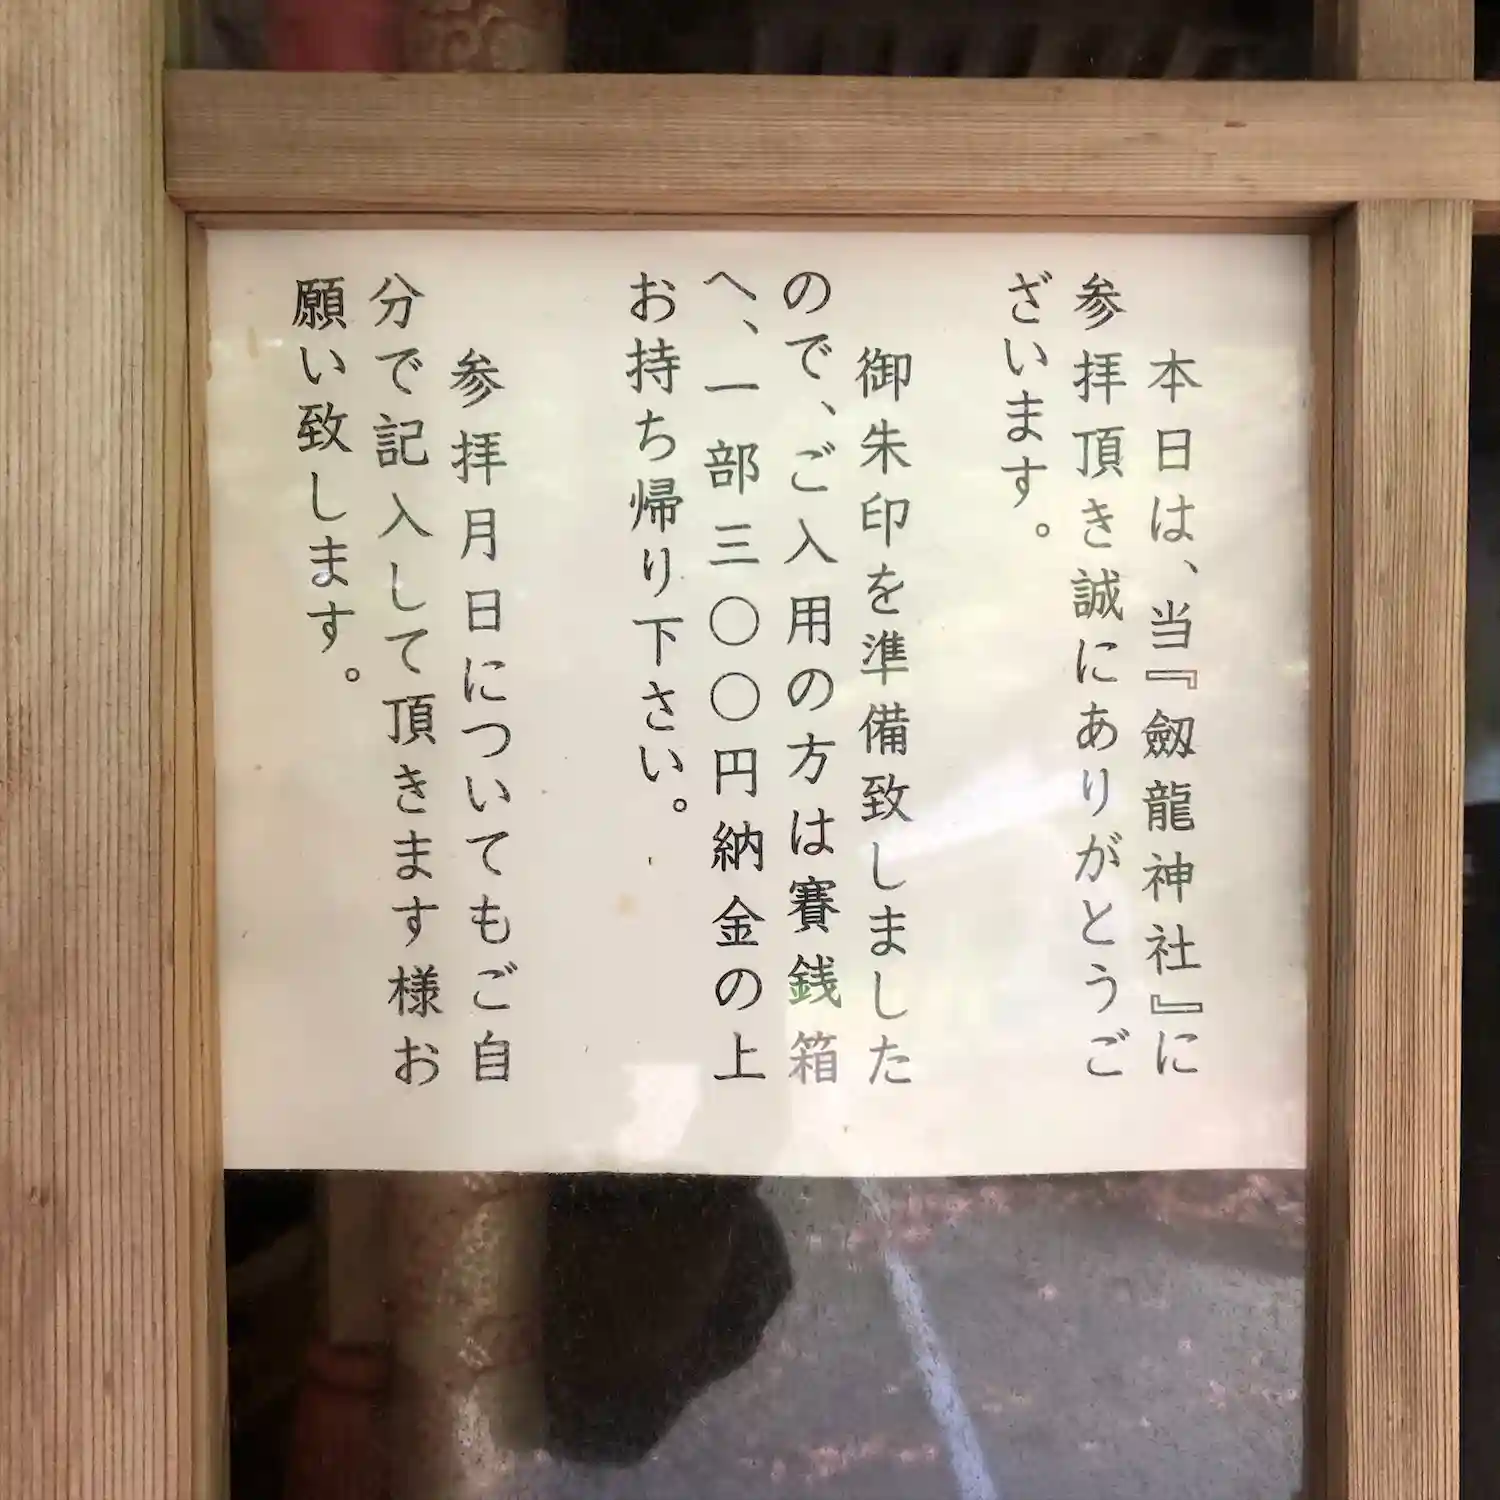 本日は、当『劔龍神社』に
参拝頂き誠にありがとうご
ざいます。
御朱印を準備致しました
ので、ご入用の方は賽銭箱
へ、一部三〇〇円納金の上
お持ち帰り下さい。
参拝月日についてもご自
分で記入して頂きます様お
願い致します。